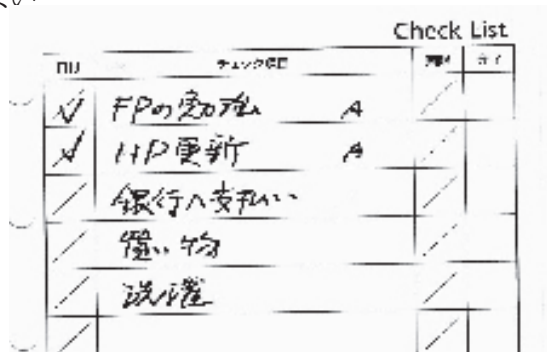 Check List
チェック項目
FPの勉強 A
HP更新 A
銀行へ支払い
買い物
洗濯